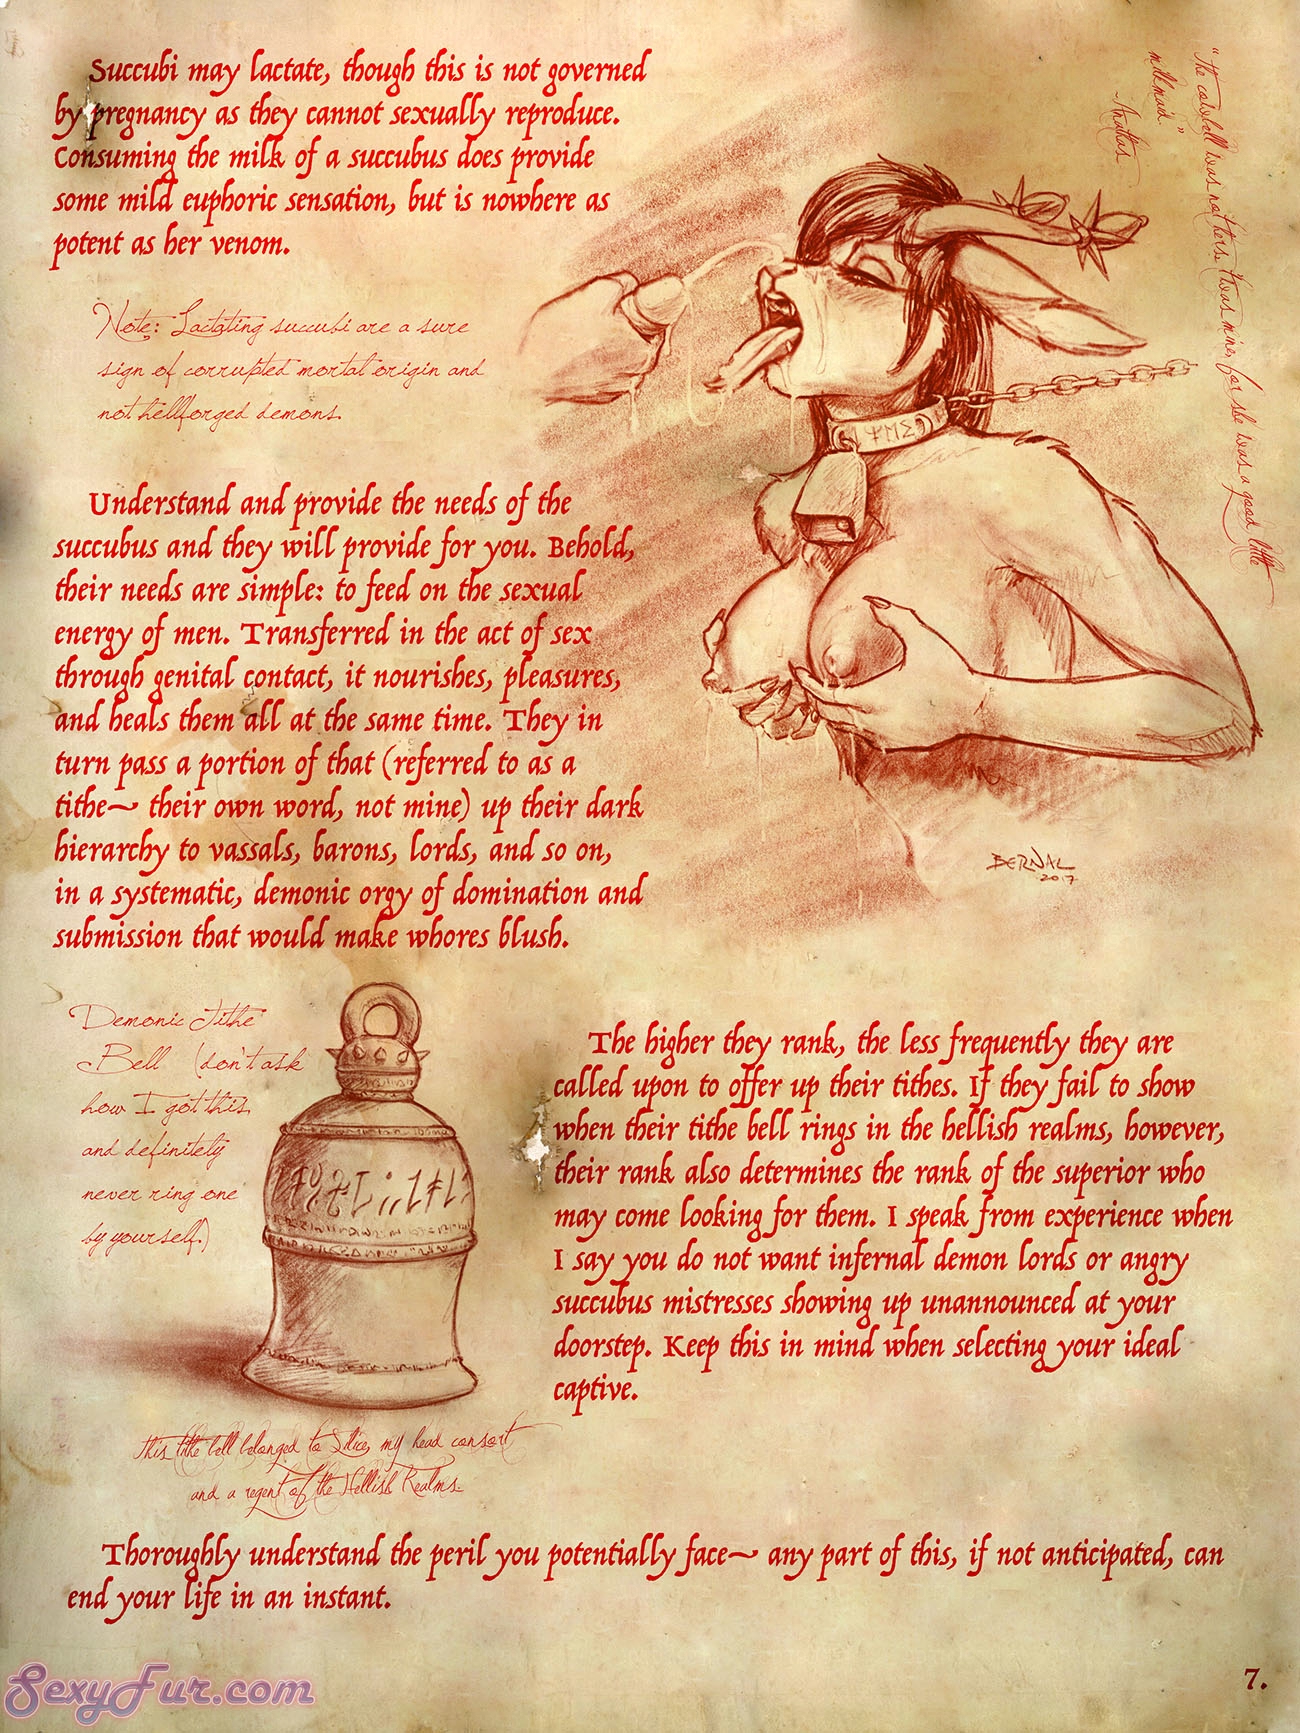 Succubi may lactate, though this is not governed
by pregnancy as they cannot sexually reproduce.
Consuming the milk of a succubus does provide
some mild euphoric sensation, but is nowhere as
potent as her venom.
Note: Lactating succubi are a sure
sign of corrupted mortal origin and
not hellforged demons.
"The cowbell was not hers. 'twas mine, for she was a good little
milkmaid"
BERNAL
2017
Understand and provide the needs of the
succubus and they will provide for you. Behold,
their needs are simple: to feed on the sexual
energy of men. Transferred in the act of sex
through genital contact, it nourishes, pleasures,
and heals them all at the same time. They in
turn pass a portion of that (referred to as a
tithe~ their own word, not mine) up their dark
hierarchy to vassals, barons, lords, and so on,
in a systematic, demonic orgy of domination and
submission that would make whores blush.
Demonic Tithe
Bell (don't ask
how I got this
and definitely
never ring one
by yourself.)
The higher they rank, the less frequently they are
called upon to offer up their tithes. If they fail to show
when their tithe bell rings in the hellish realms, however,
their rank also determines the rank of the superior who
may come looking for them. I speak from experience when
I say you do not want infernal demon lords or angry
succubus mistresses showing up unannounced at your
doorstep. Keep this in mind when selecting your ideal
captive.
This tithe bell belonged to my head consort
and a regent of the Hellish Realms.
Thoroughly understand the peril you potentially face~ any part of this, if not anticipated, can
end your life in an instant.
SexyFur.com
7.